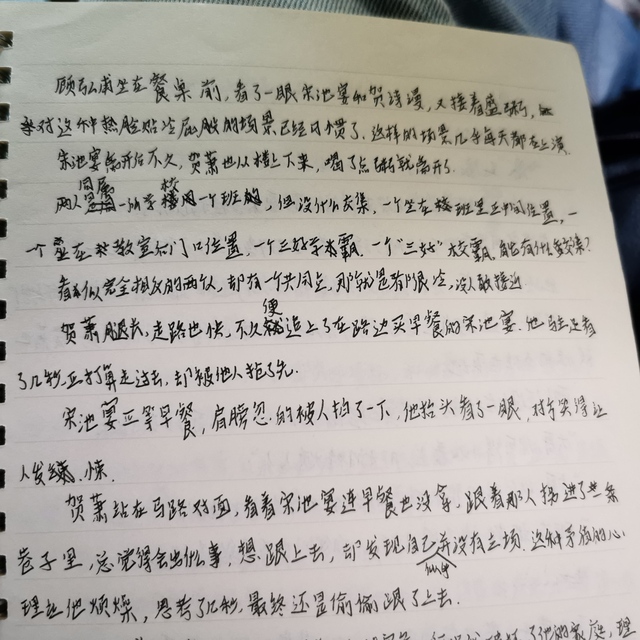 顾弘甫坐在餐桌前，看了一眼宋池宴和贺诗漫，又接着盛粥，
对这种热脸贴冷屁股的场景已经习惯了，这样的场景几乎每天都在上演
宋池宴离开后不久，贺萧也从楼上下来，喝了点粥就离开了.
两人同属一所学校同一个班，但没什么交集，一个坐在班里正中间位置，一
一个坐在教室后门口位置，一个三好学霸，一个"三好"校霸，能有什么交集？
看似完全相反的两个人，却有一个共同点，那就是都很冷，没人敢接近
贺萧腿长，走路也快，不久便追上了在路边买早餐的宋池宴. 他驻足看
了几秒正打算走过去，却被他人抢了先.
宋池宴正等早餐，肩膀忽的被人拍了一下，他抬头看了一眼，对方笑得让
人发悚.
贺萧站在马路对面，看着宋池宴连早餐也没拿，跟着那人拐进了一条
巷子里，总觉得会出什么事，想跟上去，却发现自己并没有立场. 这种矛盾的心
理让他烦燥，思考了几秒，最终还是偷偷跟了上去.